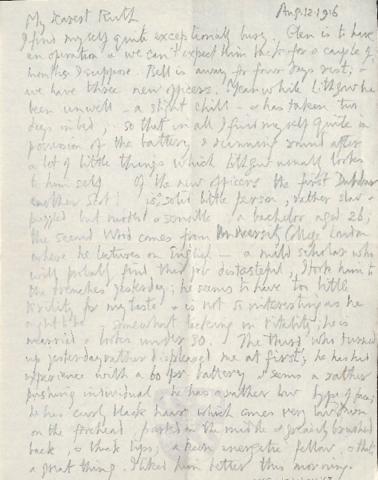 Aug. 12. 1916
My dearest Ruth
I find myself quite exceptionally busy. Glen is to have
an operation & we can't expect him back for a couple of
months I suppose. Bell is away for four days rest, &
we have three new officers. Meanwhile Lithgow has
been unwell – a slight chill – & has taken two
days in bed; so that in all I find myself quite in
possession of the battery & running round after
a lot of little things which Lithgow usually looks
to himself. Of the new officers the first Dunbar
another Scot! is a solid little person, rather slow &
puzzled but modest & sensible a bachelor aged 26;
the second Wood comes from University College London
where he lectures on English – a mild scholar who
will probably find this job distasteful, I took him to
the trenches yesterday; he seems to have too little
for my taste & is not so interesting as he
might be, somewhat lacking in vitality; he is
married & looks under 30. The third who turned
up yesterday rather displeased me at first; he has had
experience with a 60 pr battery & seems a rather
pushing individual he has a rather low type of face;
he has curly black hair which comes very low down
on the forehead parted in the middle & brushed
back, & thick lips; a keen energetic fellow & that's
a great thing. I liked him better this morning.